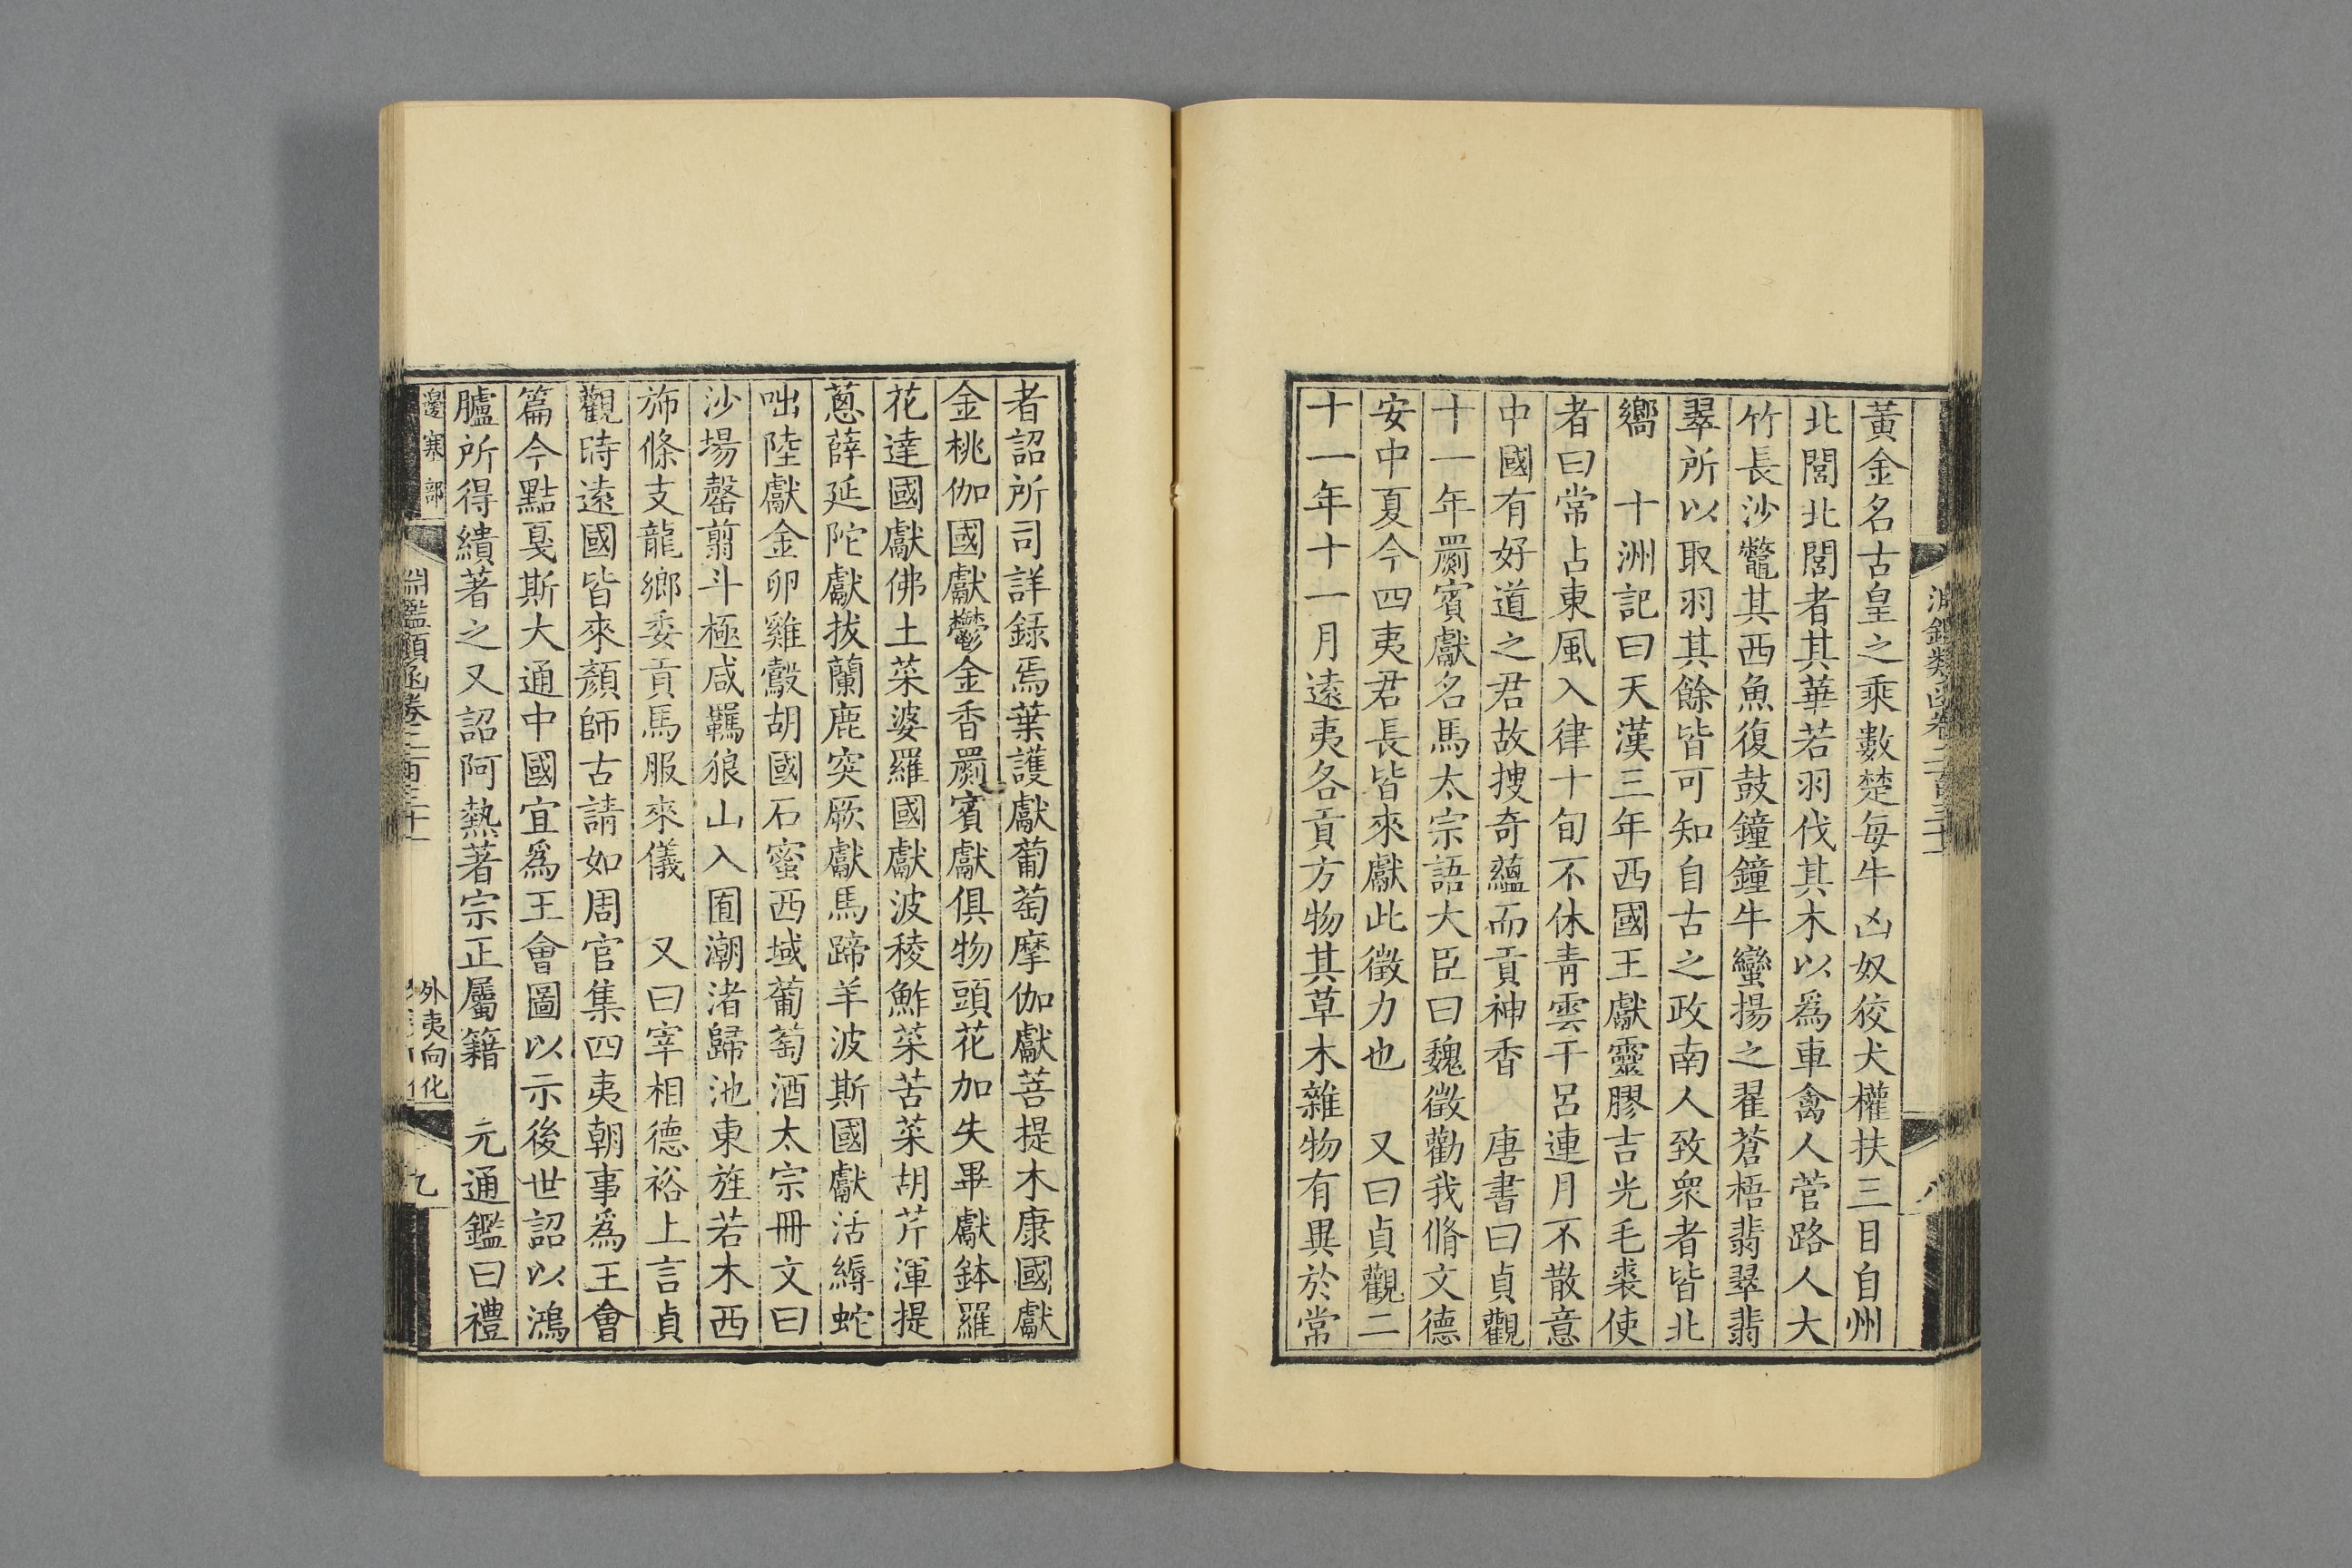 黃金名古皇之乘數楚每牛凶奴狡犬權扶三目自州
北閭北閭者其華若羽伐其木以爲車禽人菅路人大
竹長沙鼈其西魚復鼓鐘鐘牛蠻揚之翟蒼梧翡翠翡
翠所以取羽其餘皆可知自古之政南人致衆者皆北
嚮　十洲記曰天漢三年西國王獻靈膠吉光毛裘使
者曰常占東風入律十旬不休靑雲干呂連月不散意
中國有好道之君故搜奇蘊而貢神香　唐書曰貞觀
十一年罽賓獻名馬太宗語大臣曰魏徵勸我脩文德
安中夏今四夷君長皆來獻此徵力也　又曰貞觀二
十一年十一月遠夷各貢方物其草木雜物有異於常
八
者詔所司詳録焉葉護獻葡萄摩伽獻菩提木康國獻
金桃伽國獻鬱金香罽賓獻俱物頭花加失畢獻鉢羅
花達國獻佛土菜婆羅國獻波稜鮓菜苦菜胡芹渾提
蔥薛延陀獻拔蘭鹿突厥獻馬蹄羊波斯國獻活縟蛇
咄陸獻金卵雞鷇胡國石蜜西域葡萄酒太宗冊文曰
沙場罄翦斗極咸羈狼山入囿潮渚歸池東旌若木西
斾條支龍鄉委貢馬服來儀　又曰宰相德裕上言貞
觀時遠國皆來顏師古請如周官集四夷朝事爲王會
篇今黠戛斯大通中國宜爲王會圖以示後世詔以鴻
臚所得繢著之又詔阿熱著宗正屬籍　元通鑑曰禮
邊塞部
淵鑑類函卷二百三十一
外夷向化
九